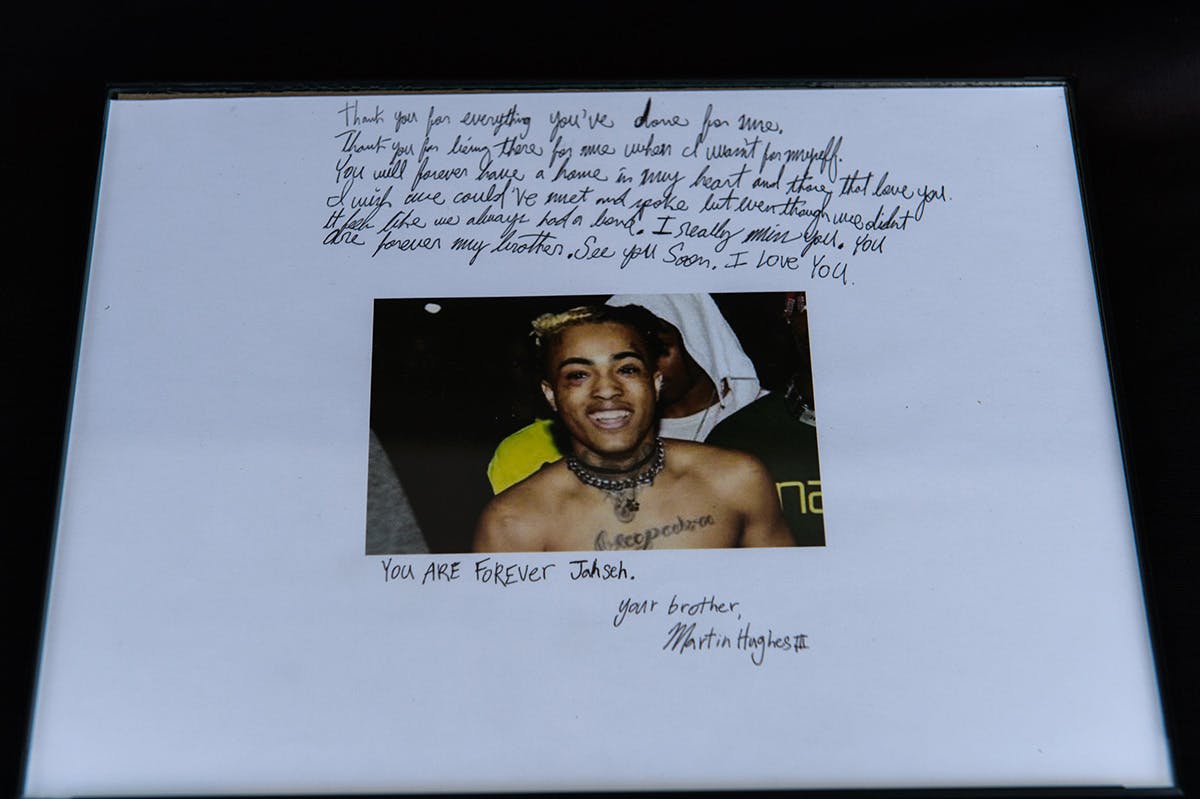 Thank you for everything you've done for me.
Thank you for being there for me when I wasn't for myself.
You will forever have a home in my heart and those that love you.
I wish we could've met and spoke but even though we didn't
It feels like we always had a bond. I really miss you. You
are forever my brother. See you soon. I love you.
Cleopatra
na
YOU ARE FOREVER Jahseh.
your brother,
Martin Hughes III